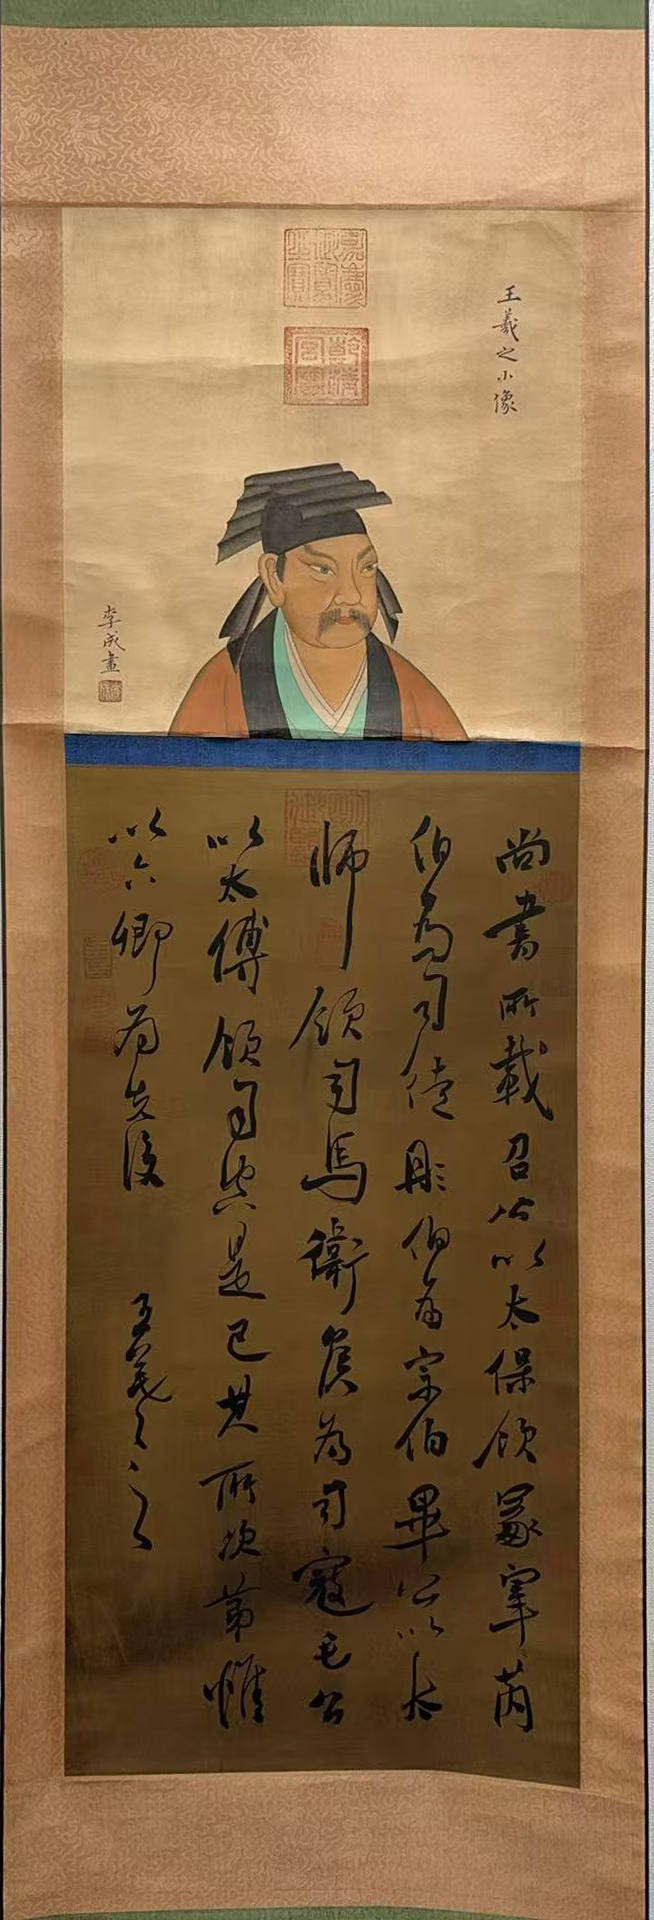 王羲之小像
李成畫
尚書所載召公以太保領冢宰芮
伯為司徒彤伯為宗伯畢公以太
師領司馬衛侯為司寇毛公
以太傅領司空是已其所次第惟
以六卿為先後
王羲之
乾清宮寶